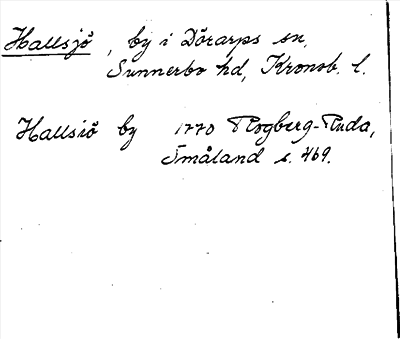 Hallsjö, by i Dörarps sn,
Sunnerbo hd, Kronob. l.
Hallsiö by 1770 Rogberg-Ruda,
Småland s. 469.